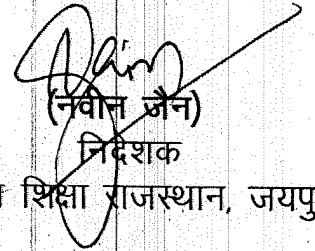 (नवीन जैन)
निदेशक
शिक्षा राजस्थान, जयपु